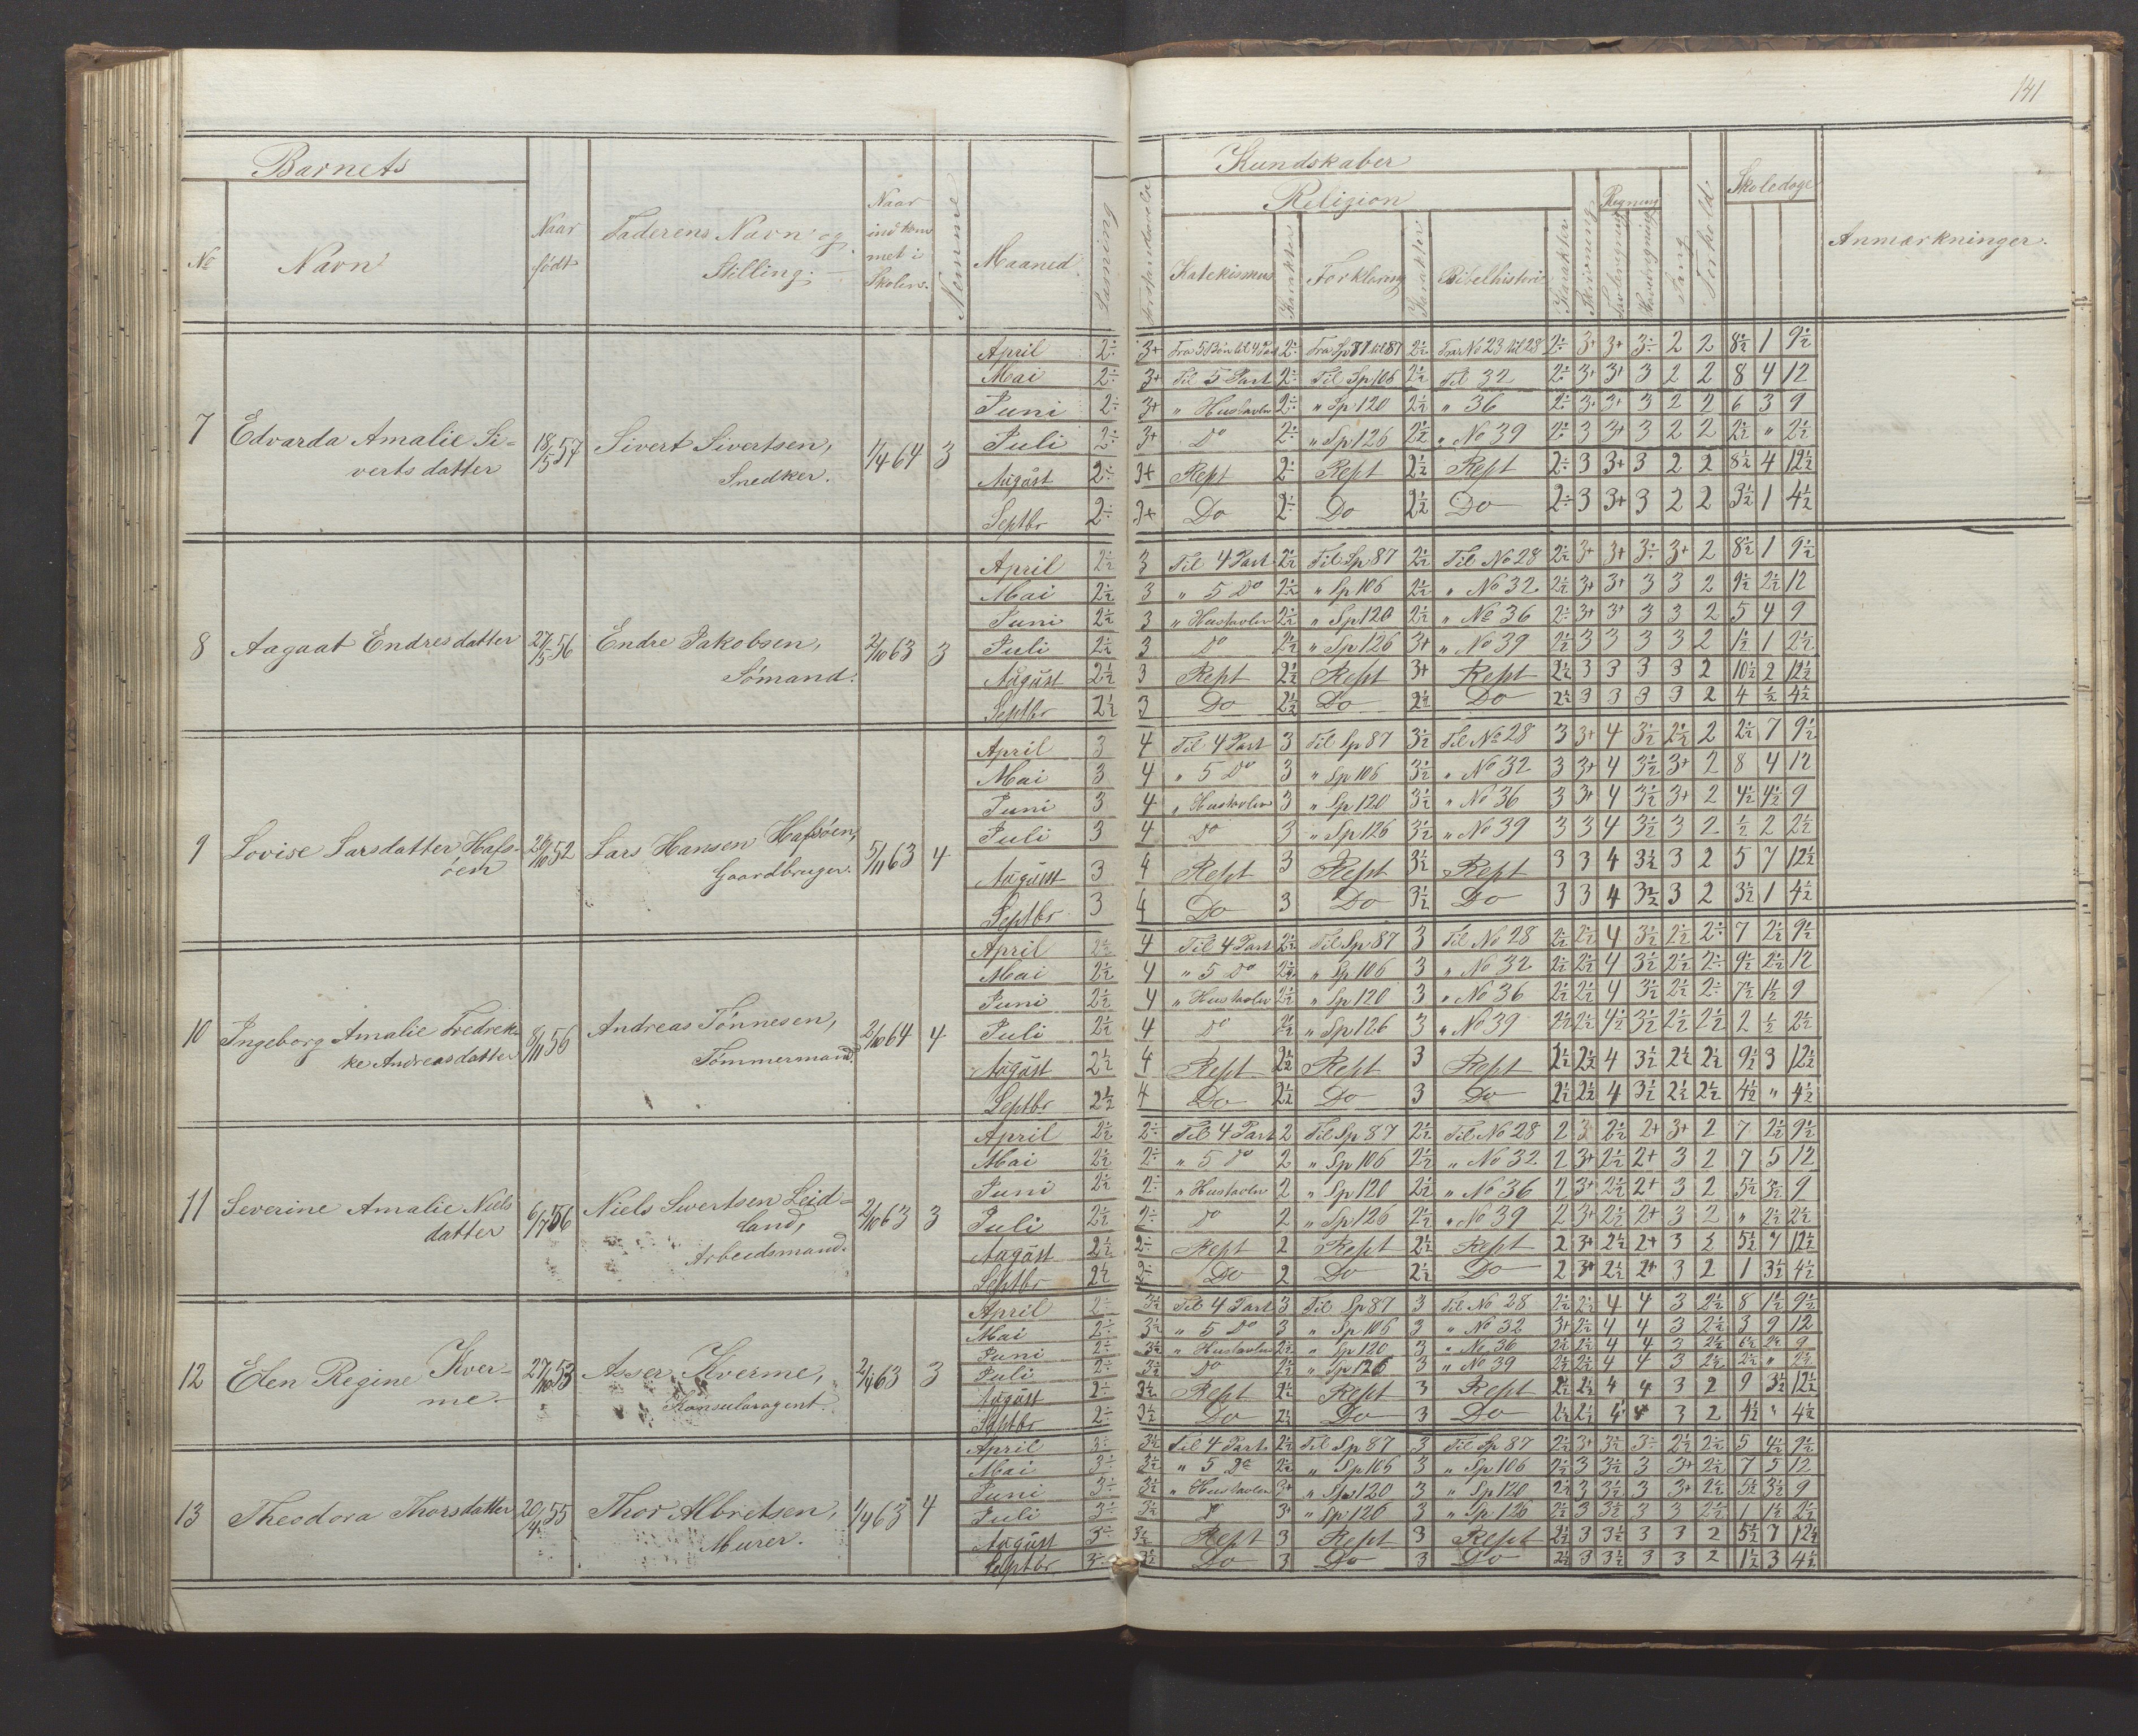 141
Barnets
Kundskaber
Religion
Regning
Skoledage
No
Navn
Naar født
Faderens Navn og Stilling.
Naar indkommet i Skolen.
Nemme
Maaned
Læsning
Forstandsøvelse
Katekismus
Karakter
Forklaring
Karakter
Bibelhistorie
Karakter
Skrivning
Tavleregning
Hovedregning
Sang
Forhold
Anmærkninger.
7 Edvarda Amalie Si=
verts datter
18/5 57
Sivert Sivertsen,
Snedker.
1/4 64 3
April 2÷ 3+ Fra 5 Bøn til 4 Part 2÷ Fra Sp 71 til 87 2½ Fra No 23 til 28 2÷ 3+ 3+ 3÷ 2 2 8½ 1 9½
Mai 2÷ 3+ Til 5 Part 2÷ Til Sp 106 2½ Til 32 2÷ 3+ 3+ 3 2 2 8 4 12
Juni 2÷ 3+ " Hustavlen 2÷ " Sp 120 2½ " 36 2÷ 3+ 3+ 3 2 2 6 3 9
Juli 2÷ 3+ Do 2÷ " Sp 126 2½ " No 39 2÷ 3 3+ 3 2 2 2½ " 2½
August 2÷ 3+ Rept 2÷ Rept 2½ Rept 2÷ 3 3+ 3 2 2 8½ 4 12½
Septbr 2÷ 3+ Do 2÷ Do 2½ Do 2÷ 3 3+ 3 2 2 3½ 1 4½
8 Aagaat Endresdatter
27/5 56
Endre Jakobsen,
Sømand.
2/10 63 3
April 2½ 3 Til 4 Part 2½ Til Sp 87 2½ Til No 28 2½ 3+ 3+ 3÷ 3+ 2 8½ 1 9½
Mai 2½ 3 " 5 Do 2½ " Sp 106 2½ " No 32 2½ 3+ 3+ 3 3 2 9½ 2½ 12
Juni 2½ 3 " Hustavlen 2½ " Sp 120 2½ " No 36 2÷ 3+ 3+ 3 3 2 5 4 9
Juli 2½ 3 Do 2½ " Sp 126 3+ " No 39 2½ 3 3 3 3 2 1½ 1 2½
August 2½ 3 Rept 2½ Rept 3+ Rept 2½ 3 3 3 3 2 10½ 2 12½
Septbr 2½ 3 Do 2½ Do 2½ Do 2½ 3 3 3 3 2 4 ½ 4½
9 Lovise Larsdatter Hafs=
øen
26/10 52
Lars Hansen Hafsøen,
Gaardbruger.
5/11 63 4
April 3 4 Til 4 Part 3 Til Sp 87 3½ Til No 28 3 3+ 4 3½ 2½ 2 2½ 7 9½
Mai 3 4 " 5 Do 3 " Sp 106 3½ " No 32 3 3+ 4 3½ 3+ 2 8 4 12
Juni 3 4 " Hustavlen 3 " Sp 120 3½ " No 36 3 3+ 4 3½ 3+ 2 4½ 4½ 9
Juli 3 4 Do 3 " Sp 126 3½ " No 39 3 3 4 3½ 3 2 ½ 2 2½
August 3 4 Rept 3 Rept 3½ Rept 3 3 4 3½ 3 2 5 7 12½
Septbr 3 4 Do 3 Do 3½ Do 3 3 4 3½ 3 2 3½ 1 4½
10 Ingeborg Amalie Fredrek=
ke Andreasdatter
8/11 56
Andreas Tønnesen,
Tømmermand.
2/10 64 4
April 2½ 4 Til 4 Part 2½ Til Sp 87 3 Til No 28 2½ 2½ 4 3½ 2½ 2÷ 7 2½ 9½
Mai 2½ 4 " 5 Do 2½ " Sp 106 3 " No 32 2½ 2½ 4 3½ 2½ 2÷ 9½ 2½ 12
Juni 2½ 4 " Hustavlen 2½ " Sp 120 3 " No 36 2½ 2½ 4 3½ 2½ 2÷ 7½ 1½ 9
Juli 2½ 4 Do 2½ " Sp 126 3 " No 39 2½ 2½ 4½ 3½ 2½ 2½ 2 ½ 2½
August 2½ 4 Rept 2½ Rept 3 Rept 2½ 2½ 4 3½ 2½ 2½ 9½ 3 12½
Septbr 2½ 4 Do 2½ Do 3 Do 2½ 2½ 4 3½ 2½ 2½ 4½ " 4½
11 Severine Amalie Niels
datter
6/7 56
Niels Sivertsen Leid=
land,
Arbeidsmand.
2/10 63 3
April 2½ 2÷ Til 4 Part 2 Til Sp 87 2½ Til No 28 2 3 2½ 2+ 3+ 2 7 2½ 9½
Mai 2½ 2÷ " 5 Do 2 " Sp 106 2½ " No 32 2 3+ 2½ 2+ 3 2 7 5 12
Juni 2½ 2÷ " Hustavlen 2 " Sp 120 2½ " No 36 2 3+ 2½ 2+ 3 2 5½ 3½ 9
Juli 2½ 2÷ Do 2 " Sp 126 2½ " No 39 2 3+ 2½ 2+ 3 2 " 2½ 2½
August 2½ 2÷ Rept 2 Rept 2½ Rept 2 3+ 2½ 2+ 3 2 5½ 7 12½
Septbr 2½ 2÷ Do 2 Do 2½ Do 2 3+ 2½ 2+ 3 2 1 3½ 4½
12 Elen Regine Kver=
me.
27/10 53
Asser Kverme,
Konsularagent.
2/4 63 3
April 2÷ 3½ Til 4 Part 3 Til Sp 87 3 Til No 28 2½ 2½ 4 4 3 2½ 8 1½ 9½
Mai 2÷ 3½ " 5 Do 3 " Sp 106 3 " No 32 3+ 2½ 4 4 3 2½ 3 9 12
Juni 2÷ 3½ " Hustavlen 2½ " Sp 120 3 " No 36 2½ 2½ 4 4 3 2½ 6½ 2½ 9
Juli 2÷ 3½ Do 2½ " Sp 126 3 " No 39 2½ 2½ 4 4 3 2½ 2½ " 2½
August 2÷ 3½ Rept 2½ Rept 3 Rept 2½ 2½ 4 4 3 2 9 3½ 12½
Septbr 2÷ 3½ Do 2½ Do 3 Do 2½ 2½ 4 4 3 2 4½ " 4½
13 Theodora Thorsdatter
20/4 55
Thor Albretsen,
Murer.
1/4 63 4
April 3÷ 3½ Til 4 Part 2½ Til Sp 87 3 Til Sp 87 2½ 3+ 3½ 3÷ 2½ 2½ 5 4½ 9½
Mai 3÷ 3½ " 5 Do 2½ " Sp 106 3 " Sp 106 2½ 3 3½ 3 3+ 2½ 7 5 12
Juni 3÷ 3½ " Hustavlen 3+ " Sp 120 3 " Sp 120 2½ 3 3½ 3 3+ 2½ 5½ 3½ 9
Juli 3÷ 3½ Do 3+ " Sp 126 3 " Sp 126 2½ 3 3½ 3 3 2½ 1 1½ 2½
August 3÷ 3½ Rept 3 Rept 3 Rept 2½ 3 3½ 3 3 2 5½ 7 12½
Septbr 3÷ 3½ Do 3 Do 3 Do 2½ 3 3½ 3 3 2 1½ 3 4½